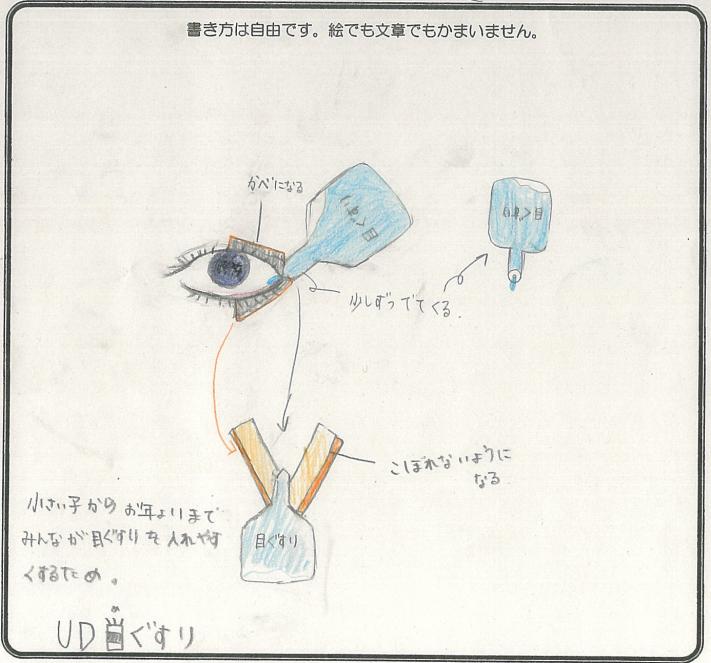 書き方は自由です。絵でも文章でもかまいません。
かべになる
目ぐすり
目ぐすり
少しずつでてくる.
こぼれないように
なる
目ぐすり
小さい子からお年よりまで
みんなが目ぐすりを入れやす
くするため。
め
UD目ぐすり